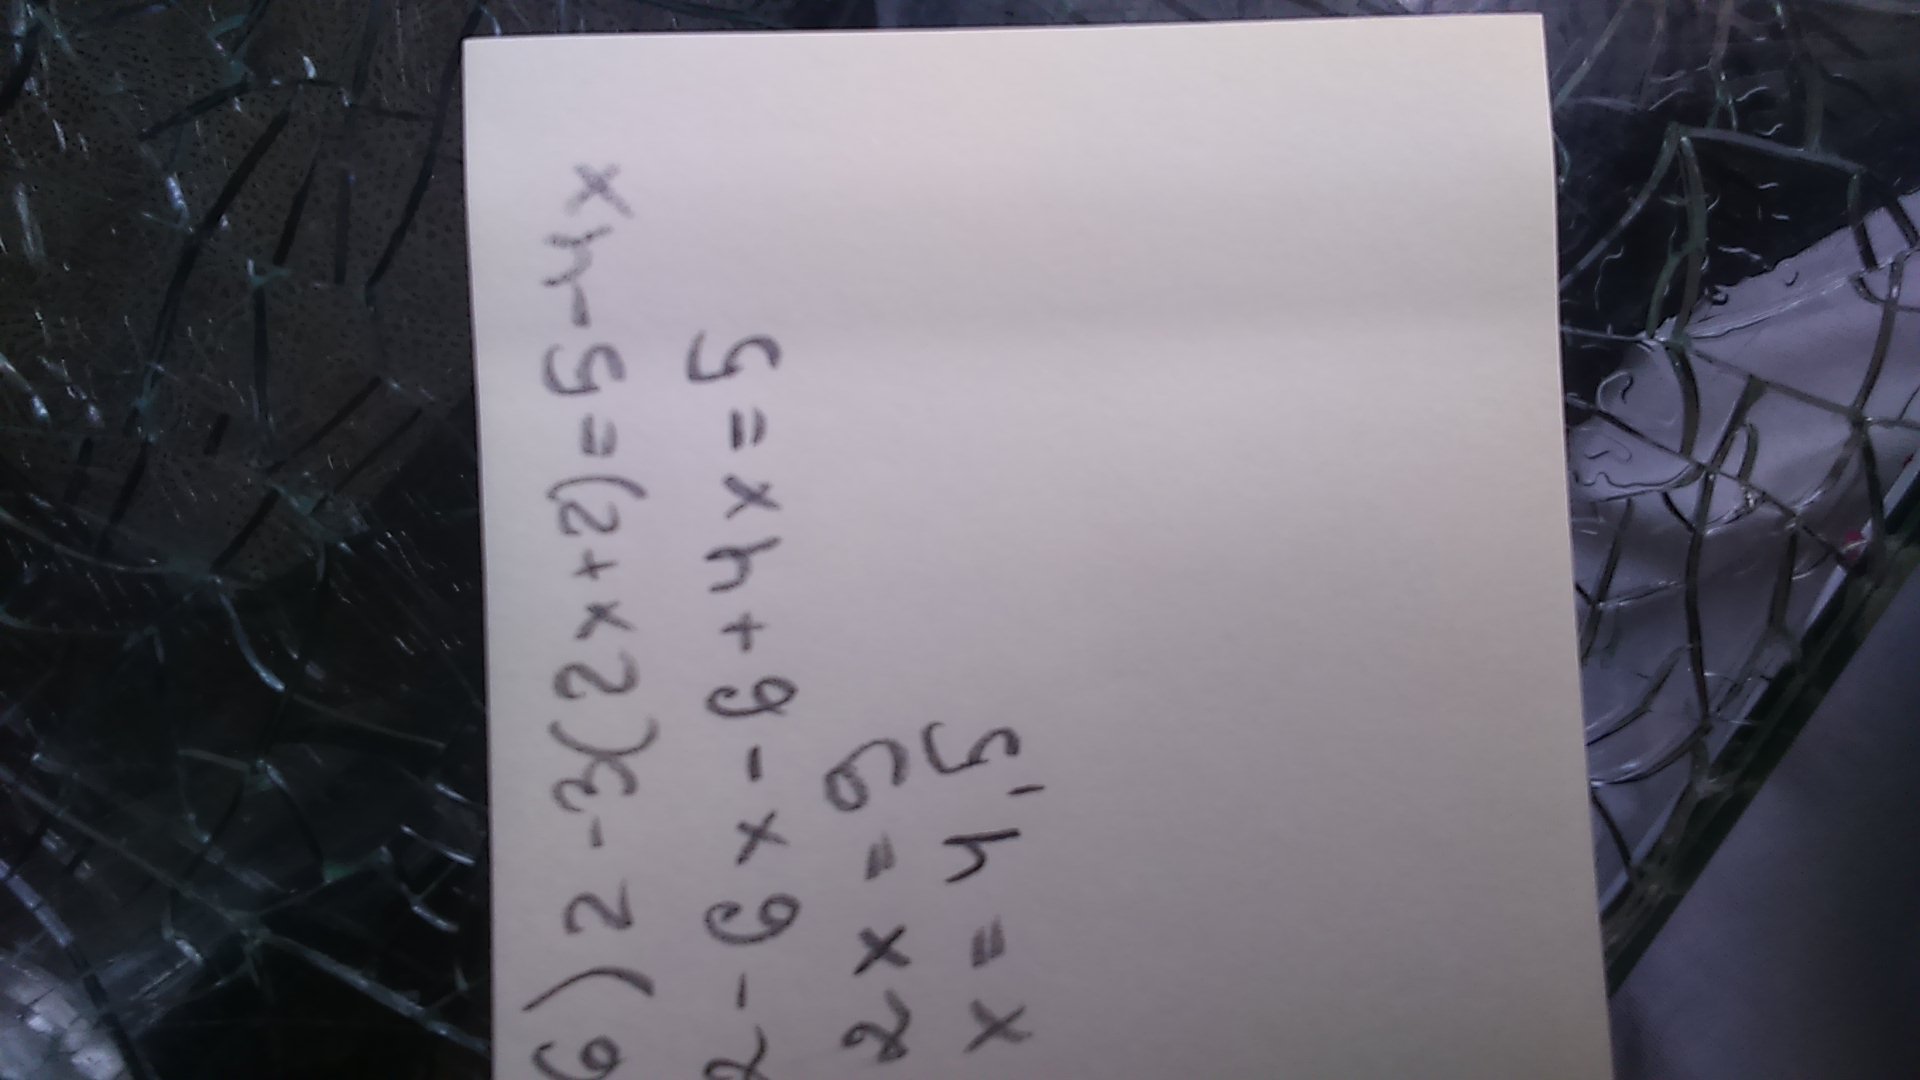 6) 2 - 3(2x+2) = 5 - 4x
2 - 6x - 6 + 4x = 5
2x = 9
x = 4,5